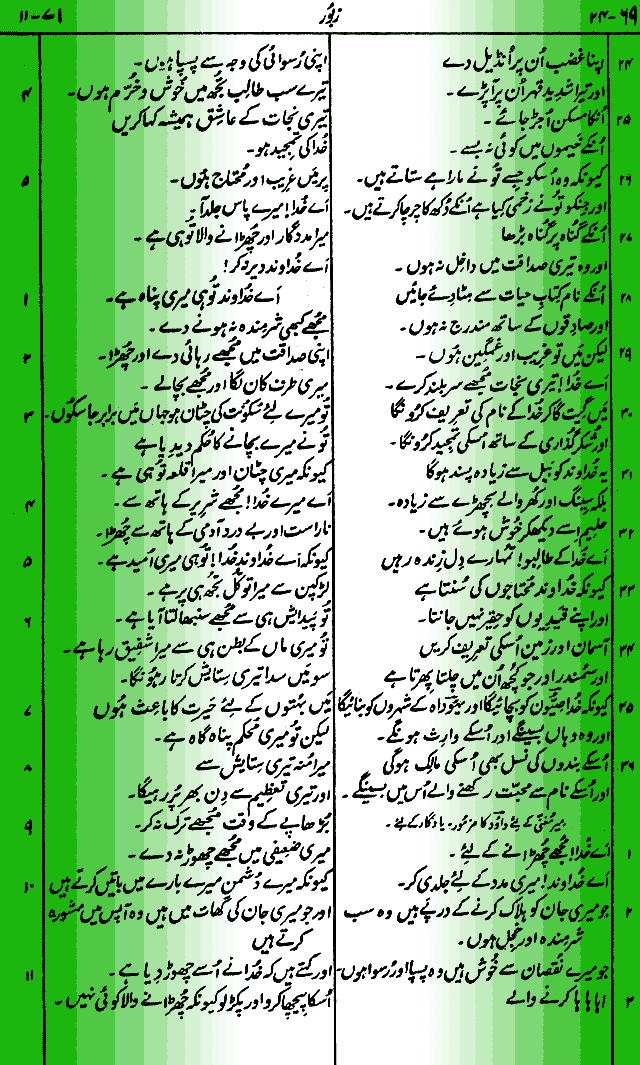 ۶۹-۲۴
زبُور
۷۱-۱۱
۲۴ اپنا غضب اُن پر اُنڈیل دے
اور تیرا شدید قہر اُن پر آ پڑے۔
۲۵ اُنکا مسکن اُجڑ جائے۔
اُنکے خیموں میں کوئی نہ بسے۔
۲۶ کیونکہ وہ اُسکو جسے تُو نے مارا ہے ستاتے ہیں۔
اور جنکو تُو نے زخمی کیا ہے اُنکے دُکھ کا چرچا کرتے ہیں۔
۲۷ اُنکے گناہ پر گناہ بڑھا
اور وہ تیری صداقت میں داخل نہ ہوں۔
۲۸ اُنکے نام کتابِ حیات سے مٹا دِئے جائیں
اور صادِقوں کے ساتھ مندرج نہ ہوں۔
۲۹ لیکن مَیں تو غریب اور غمگین ہوں۔
اَے خُدا! تیری نجات مُجھے سربلند کرے۔
۳۰ مَیں گیت گا کر خُدا کے نام کی تعریف کرُونگا
اور شُکرگُذاری کے ساتھ اُسکی تمجید کرُونگا۔
۳۱ یہ خُداوند کو بَیل سے زیادہ پسند ہوگا
بلکہ سینگ اور کُھر والے بچھڑے سے زیادہ۔
۳۲ حلیم اِسے دیکھ کر خُوش ہوئے ہیں۔
اَے خُدا کے طالبو! تمہارے دِل زِندہ رہیں
۳۳ کیونکہ خُداوند محتاجوں کی سُنتا ہے
اور اپنے قیدیوں کو حقیر نہیں جانتا۔
۳۴ آسمان اور زمین اُسکی تعریف کریں
اور سمندر اور جو کُچھ اُن میں چلتا پھرتا ہے
۳۵ کیونکہ خُدا صِیُّون کو بچائیگا اور یہُوداہ کے شہروں کو بنائیگا
اور وہ وہاں بسینگے اور اُسکے وارِث ہونگے۔
۳۶ اُسکے بندوں کی نسل بھی اُسکی مالِک ہوگی
اور اُسکے نام سے محبّت رکھنے والے اُس میں بسینگے۔
میر مُغنّی کے لئے داؤد کا مزمُور۔ یادگار کے لئے۔
۱ اَے خُدا! مُجھے چُھڑانے کے لئے۔
اَے خُداوند! میری مدد کے لئے جلدی کر۔
۲ جو میری جان کو ہلاک کرنے کے درپے ہیں وہ سب
شرمندہ اور خجل ہوں۔
جو میرے نُقصان سے خُوش ہیں وہ پسپا اور رُسوا ہوں۔
۳ اہا ہا ہا کرنے والے
اپنی رُسوائی کی وجہ سے پسپا ہوں۔
۴ تیرے سب طالب تُجھ میں خُوش و خُرّم ہوں۔
تیری نجات کے عاشِق ہمیشہ کہا کریں
خُدا کی تمجید ہو۔
۵ پر مَیں غریب اور مُحتاج ہُوں۔
اَے خُدا! میرے پاس جلد آ۔
میرا مددگار اور چُھڑانے والا تُو ہی ہے۔
اَے خُداوند دیر نہ کر!
۱ اَے خُداوند تُو ہی میری پناہ ہے۔
مُجھے کبھی شرمندہ نہ ہونے دے۔
۲ اپنی صداقت میں مُجھے رہائی دے اور چُھڑا۔
میری طرف کان لگا اور مُجھے بچا لے۔
۳ تُو میرے لئے سکُونت کی چٹان ہو جہاں مَیں برابر جا سکُوں۔
تُو نے میرے بچانے کا حُکم دیدیا ہے
کیونکہ میری چٹان اور میرا قلعہ تُو ہی ہے۔
۴ اَے میرے خُدا! مُجھے شریر کے ہاتھ سے۔
ناراست اور بے درد آدمی کے ہاتھ سے چُھڑا۔
۵ کیونکہ اَے خُداوند خُدا! تُو ہی میری اُمید ہے۔
لڑکپن سے میرا توکّل تُجھ ہی پر ہے۔
۶ تُو پیدایش ہی سے مُجھے سنبھالتا آیا ہے۔
تُو میری ماں کے بطن ہی سے میرا شفیق رہا ہے۔
سو مَیں سدا تیری ستایش کرتا رہُونگا۔
۷ مَیں بہتوں کے لئے حَیرت کا باعِث ہُوں
لیکن تُو میری مُحکم پناہ گاہ ہے۔
۸ میرا مُنہ تیری ستایش سے
اور تیری تعظیم سے دِن بھر پُر رہیگا۔
۹ بُڑھاپے کے وقت مُجھے ترک نہ کر۔
میری ضعیفی میں مُجھے چھوڑ نہ دے۔
۱۰ کیونکہ میرے دُشمن میرے بارے میں باتیں کرتے ہیں
اور جو میری جان کی گھات میں ہیں وہ آپس میں مشورہ
کرتے ہیں
۱۱ اور کہتے ہیں کہ خُدا نے اُسے چھوڑ دِیا ہے۔
اُسکا پیچھا کرو اور پکڑ لو کیونکہ چُھڑانے والا کوئی نہیں۔